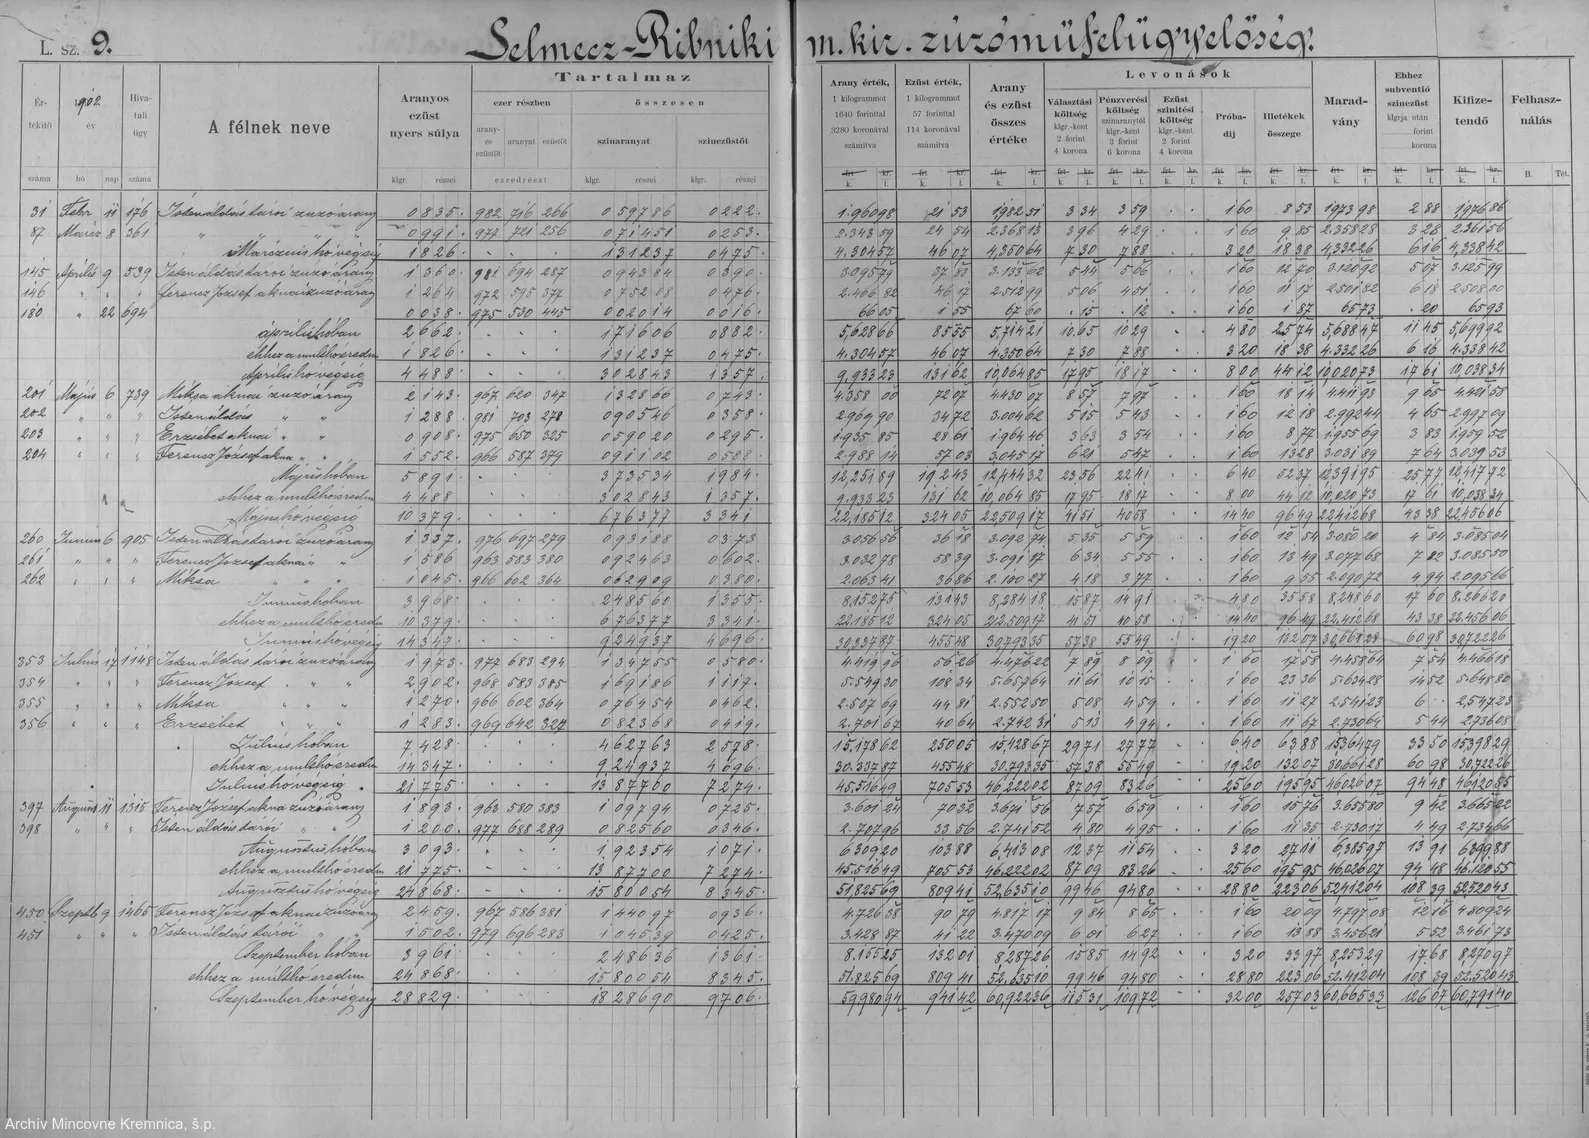 L. sz. 9. Selmecz-Ribniki m. kir. zúzóműfelügyelőség.
Ér- tékítő száma | 1902 év hó nap | Hiva- tali ügy száma | A félnek neve | Aranyos ezüst nyers súlya klgr. részei | Tartalmaz ezer részben arany- és ezüstöt aranyat ezüstöt ezredrészt | összesen színaranyat klgr. részei színezüstöt klgr. részei | Arany érték, 1 kilogrammot 1640 forinttal 3280 koronával számítva | Ezüst érték, 1 kilogrammot 57 forinttal 114 koronával számítva | Arany és ezüst összes értéke | Levonások Választási költség klgr.-ként 2 forint 4 korona | Pénzverési költség színaranytól klgr.-ként 3 forint 6 korona | Ezüst színítési költség klgr.-ként 2 forint 4 korona | Próba- díj | Illetékek összege | Marad- vány | Ehhez subventió színezüst klgrja után forint korona | Kifize- tendő | Felhasz- nálás B. Tét.
31 Febr 11 176 Istenáldás tárói zúzóarany 0 835 982 716 266 0 597 86 0 222 1.960 98 21 53 1.982 51 3 34 3 59 1 60 8 53 1.973 98 2 88 1.976 86
87 Márcz 8 361 " " " 0 991 977 721 256 0 714 51 0 253 2.343 59 24 54 2.368 13 3 96 4 29 1 60 9 85 2.358 28 3 28 2.361 56
Márczius hó végéig 1 826 1 312 37 0 475 4.304 57 46 07 4.350 64 7 30 7 88 3 20 18 38 4.332 26 6 16 4.338 42
145 Április 9 539 Istenáldás tárói zúzóarany 1 360 981 694 287 0 943 84 0 390 3.095 79 37 83 3.133 62 5 44 5 66 1 60 12 70 3.120 92 5 07 3.125 99
146 " " " Ferencz József aknai zúzóarany 1 264 972 595 377 0 752 08 0 476 2.466 82 46 17 2.512 99 5 06 4 51 1 60 11 17 2.501 82 6 18 2.508 00
180 " 22 694 0 038 975 530 445 0 020 14 0 016 66 05 1 55 67 60 15 12 1 60 1 87 65 73 20 65 93
április hóban 2 662 1 716 06 0 882 5,628 66 85 55 5,714 21 10 65 10 29 4 80 25 74 5,688 47 11 45 5,699 92
ehhez a múlt hó eredm 1 826 1 312 37 0 475 4.304 57 46 07 4.350 64 7 30 7 88 3 20 18 38 4.332 26 6 16 4.338 42
Április hó végéig 4 488 3 028 43 1 357 9.933 23 131 62 10,064 85 17 95 18 17 8 00 44 12 10,020 73 17 61 10,038 34
201 Május 6 739 Miksa aknai zúzóarany 2 143 967 620 347 1 328 66 0 743 4.358 00 72 07 4.430 07 8 57 7 97 1 60 18 14 4.411 93 9 65 4.421 58
202 " " " Istenáldás " " 1 288 981 703 278 0 905 46 0 358 2.969 90 34 72 3.004 62 5 15 5 43 1 60 12 18 2.992 44 4 65 2.997 09
203 " " " Erzsébet aknai " " 0 908 975 650 325 0 590 20 0 295 1.935 85 28 61 1.964 46 3 63 3 54 1 60 8 77 1.955 69 3 83 1.959 52
204 " " " Ferencz József akna " " 1 552 966 587 379 0 911 02 0 588 2.988 14 57 03 3.045 17 6 21 5 47 1 60 13 28 3.031 89 7 64 3.039 53
Május hóban 5 891 3 735 34 1 984 12,251 89 192 43 12,444 32 23 56 22 41 6 40 52 37 12,391 95 25 77 12,417 72
ehhez a múlt hó eredm 4 488 3 028 43 1 357 9.933 23 131 62 10,064 85 17 95 18 17 8 00 44 12 10,020 73 17 61 10,038 34
Május hó végéig 10 379 6 763 77 3 341 22,185 12 324 05 22,509 17 41 51 40 58 14 40 96 49 22,412 68 43 38 22,456 06
260 Június 6 905 Istenáldás tárói zúzóarany 1 337 976 697 279 0 931 88 0 373 3.056 56 36 18 3.092 74 5 35 5 59 1 60 12 54 3.080 20 4 84 3.085 04
261 " " " Ferencz József aknai " " 1 586 963 583 380 0 924 63 0 602 3.032 78 58 39 3.091 17 6 34 5 55 1 60 13 49 3.077 68 7 82 3.085 50
262 " " " Miksa " " 1 045 966 602 364 0 629 09 0 380 2.063 41 36 86 2.100 27 4 18 3 77 1 60 9 55 2.090 72 4 94 2.095 66
Június hóban 3 968 2 485 60 1 355 8,152 75 131 43 8,284 18 15 87 14 91 4 80 35 58 8,248 60 17 60 8,266 20
ehhez a múlt hó eredm 10 379 6 763 77 3 341 22,185 12 324 05 22,509 17 41 51 40 58 14 40 96 49 22,412 68 43 38 22.456 06
Június hó végéig 14 347 9 249 37 4 696 30,337 87 455 48 30,793 35 57 38 55 49 19 20 132 07 30,661 28 60 98 30,722 26
353 Július 17 1148 Istenáldás tárói zúzóarany 1 973 977 683 294 1 347 55 0 580 4.419 96 56 26 4.476 22 7 89 8 09 1 60 17 58 4.458 64 7 54 4.466 18
354 " " " Ferencz József " " " 2 902 968 583 385 1 691 86 1 117 5.549 30 108 34 5.657 64 11 61 10 15 1 60 23 36 5.634 28 14 52 5.648 80
355 " " " Miksa " " " 1 270 966 602 364 0 764 54 0 462 2.507 69 44 81 2.552 50 5 08 4 59 1 60 11 27 2.541 23 6 2,547 23
356 " " " Erzsébet " " " 1 283 969 642 327 0 823 68 0 419 2.701 67 40 64 2.742 31 5 13 4 94 1 60 11 67 2.730 64 5 44 2.736 08
Július hóban 7 428 4 627 63 2 578 15,178 62 250 05 15,428 67 29 71 27 77 6 40 63 88 15,364 79 33 50 15,398 29
ehhez a múlt hó eredm 14 347 9 249 37 4 696 30.337 87 455 48 30.793 35 57 38 55 49 19 20 132 07 30,661 28 60 98 30,722 26
Július hó végéig 21 775 13 877 00 7 274 45,516 49 705 53 46,222 02 87 09 83 26 25 60 195 95 46,026 07 94 48 46,120 55
397 August 11 1315 Ferencz József akna zúzóarany 1 893 963 580 383 1 097 94 0 725 3.601 24 70 32 3.671 56 7 57 6 59 1 60 15 76 3.655 80 9 42 3.665 22
398 " " " Istenáldás tárói " " 1 200 977 688 289 0 825 60 0 346 2.707 96 33 56 2.741 52 4 80 4 95 1 60 11 35 2.730 17 4 49 2.734 66
Augusztus hóban 3 093 1 923 54 1 071 6309 20 103 88 6,413 08 12 37 11 54 3 20 27 11 6,385 97 13 91 6,399 88
ehhez a múlt hó eredm 21 775 13 877 00 7 274 45.516 49 705 53 46.222 02 87 09 83 26 25 60 195 95 46.026 07 94 48 46.120 55
Augusztus hó végéig 24 868 15 800 54 8 345 51,825 69 809 41 52,635 10 99 46 94 80 28 80 223 06 52,412 04 108 39 52,520 43
450 Szeptb 9 1405 Ferencz József aknai zúzóarany 2 459 967 586 381 1 440 97 0 936 4.726 38 90 79 4.817 17 9 84 8 65 1 60 20 09 4.797 08 12 16 4.809 24
451 " " " Istenáldás tárói " " 1 502 979 696 283 1 045 39 0 425 3.428 87 41 22 3.470 09 6 01 6 27 1 60 13 88 3.456 21 5 52 3.461 73
Szeptember hóban 3 961 2 486 36 1 361 8.155 25 132 01 8287 26 15 85 14 92 3 20 33 97 8,253 29 17 68 8,270 97
ehhez a múlt hó eredm 24 868 15 800 54 8 345 51.825 69 809 41 52.635 10 99 46 94 80 28 80 223 06 52.412 04 108 39 52.520 43
Szeptember hó végéig 28 829 18 286 90 9 706 59,980 94 941 42 60,922 36 115 31 109 72 32 00 257 03 60,665 33 126 07 60,791 40
Archív Mincovne Kremnica, š.p.